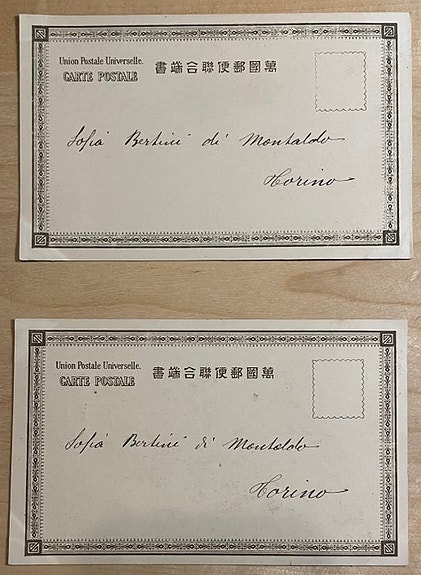 Union Postale Universelle.
CARTE POSTALE
萬國郵便聯合端書
Sofia Bertini di Montaldo
Torino
Union Postale Universelle.
CARTE POSTALE
萬國郵便聯合端書
Sofia Bertini di Montaldo
Torino